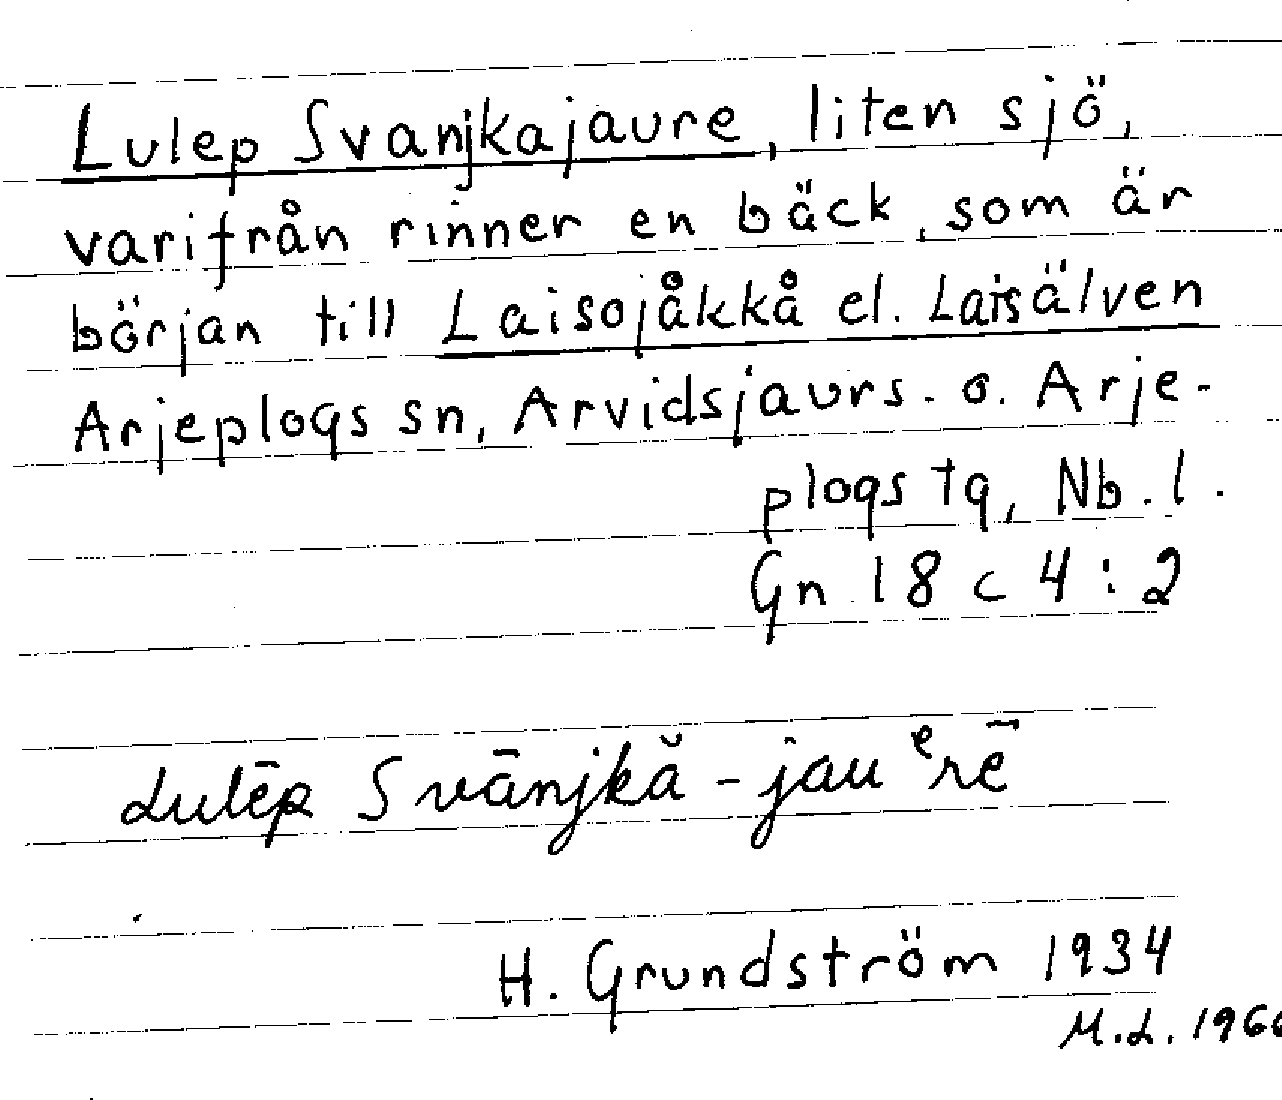 Lulep Svanjkajaure, liten sjö,
varifrån rinner en bäck, som är
början till Laisojåkkå el. Laisälven
Arjeplogs sn, Arvidsjaurs. o. Arje-
plogs tg, Nb. l.
Gn 18 c 4:2
Lulēp Svānjkă-jauᵉrē
H. Grundström 1934
M.L. 1966